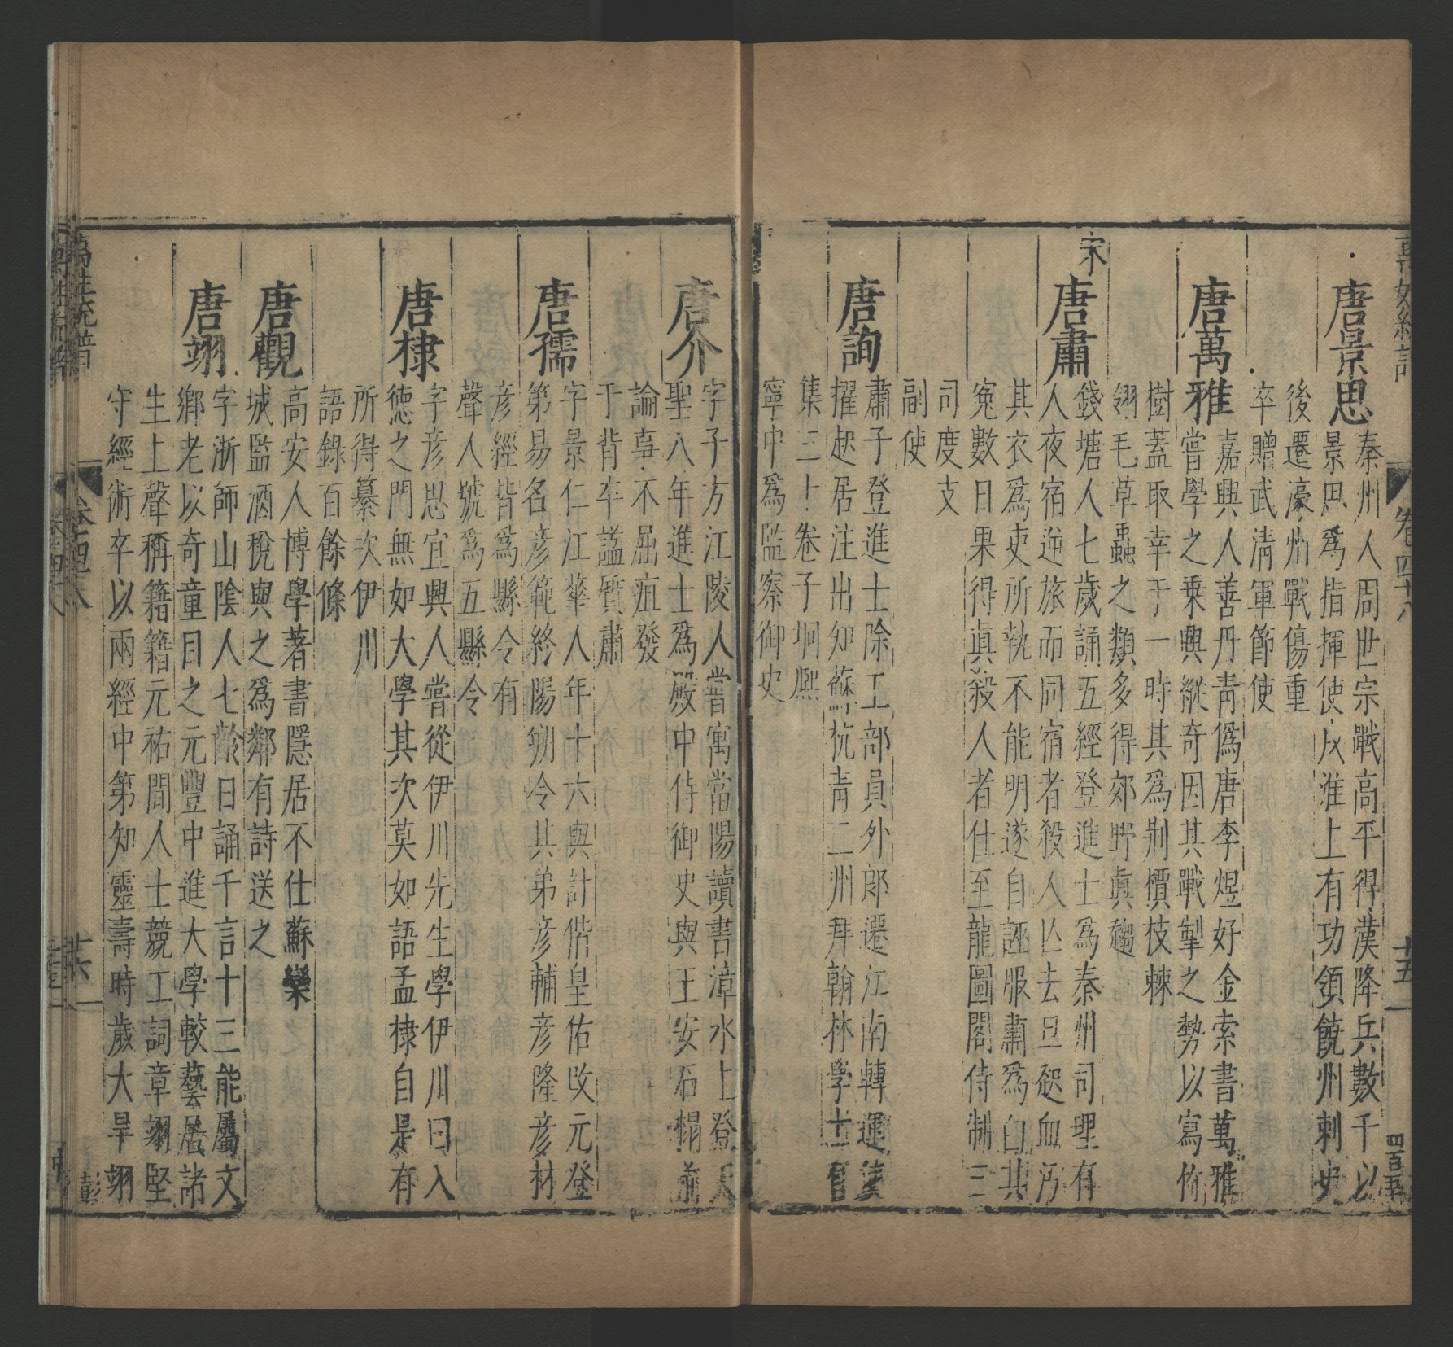 唐景思
秦州人周世宗戰高平得漢降兵數千以
景思爲指揮使戍淮上有功領饒州刺史
後遷濠州戰傷重
卒贈武清軍節使
唐萬雅
嘉興人善丹青僞唐李煜好金索書萬雅
嘗學之乗興縱奇因其戰掣之勢以寫竹
樹蓋取幸于一時其爲荆檟枝棘
翎毛草蟲之類多得郊野眞趣
宋
唐肅
錢塘人七歲誦五經登進士爲秦州司理有
人夜宿逆旅而同宿者殺人亡去旦起血汚
其衣爲吏所執不能明遂自誣服肅爲白其
寃數日果得眞殺人者仕至龍圖閣侍制三
司度支
副使
唐詢
肅子登進士除工部員外郎遷江南轉運
擢起居注出知蘇杭青二州拜翰林學士有
集三十卷子坰熙
寧中爲監察御史
唐介
字子方江陵人嘗寓當陽讀書漳水上登天
聖八年進士爲殿中侍御史與王安石榻前
論事不屈疽發
于背卒謚質肅
唐儒
字景仁江華人年十六與計偕皇佑改元登
第易名彦範終陽朔令其弟彦輔彦隆彦材
彦經皆爲縣令有
聲人號爲五縣令
唐棣
字彦思宜興人嘗從伊川先生學伊川曰入
德之門無如大學其次莫如語孟棣自是有
所得纂次伊川
語錄百餘條
唐觀
高安人博學著書隱居不仕蘇欒
城監酒稅與之爲鄰有詩送之
唐翊
字浙師山陰人七齡日誦千言十三能屬文
鄉老以奇童目之元豐中進大學較藝居諸
生上聲稱籍籍元祐間人士競工詞章翊堅
守經術卒以兩經中第知靈壽時歲大旱翊
萬姓統譜
卷四十八
十五